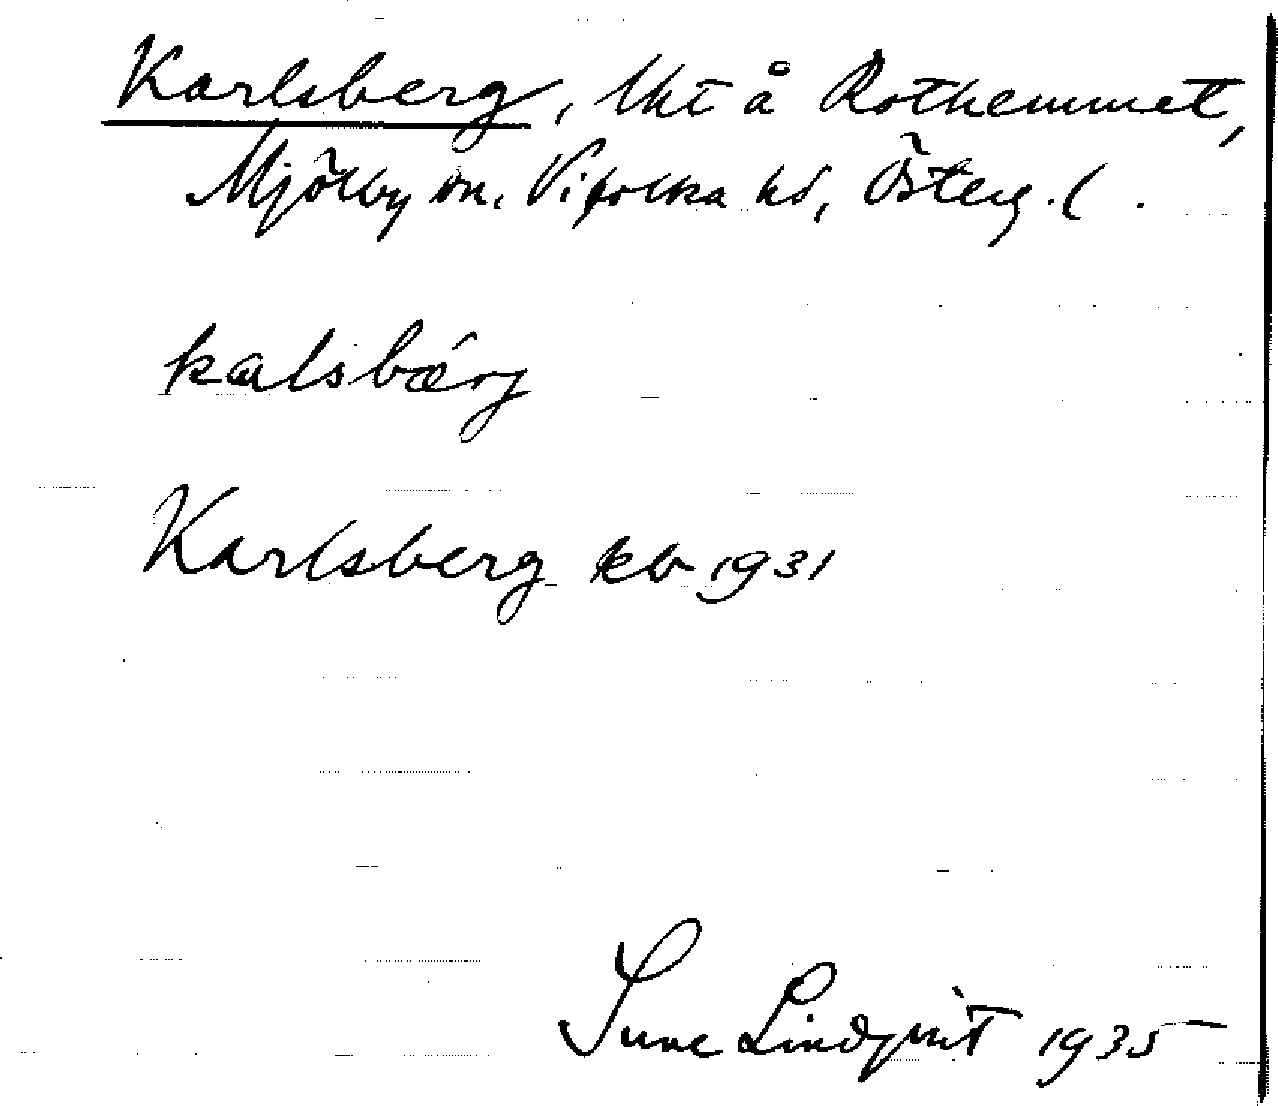 Karlsberg, lht å Rothemmet,
Mjölby sn. Vifolka hd, Österg. l.
kalsbǽrj
Karlsberg kb 1931
Sune Lindqvist 1935